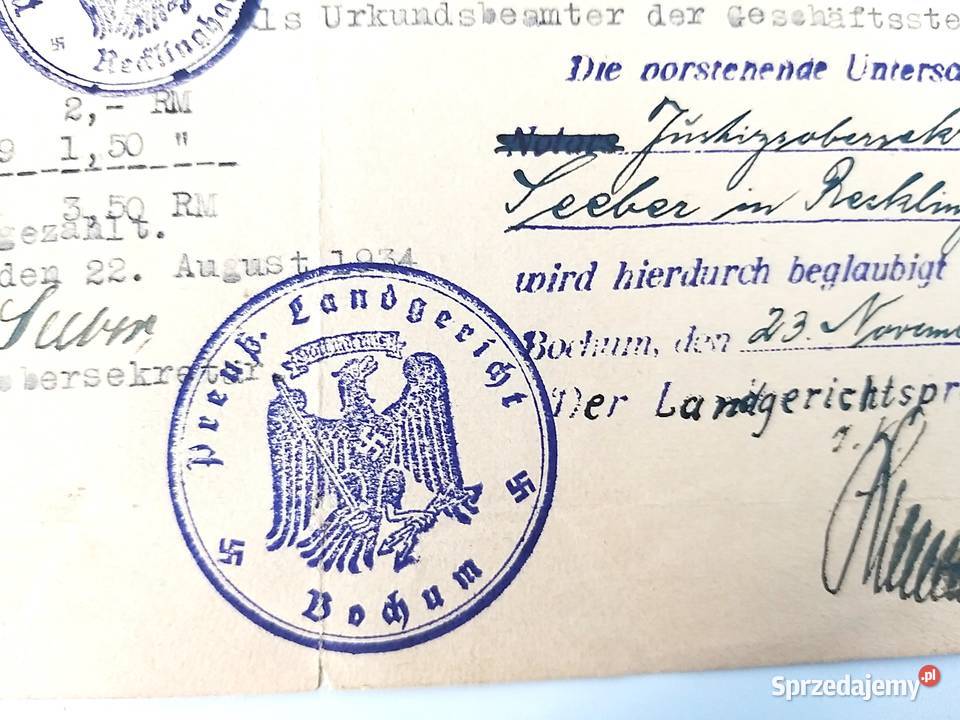 als Urkundsbeamter der Geschäftsste
Recklingha
Die vorstehende Untersc
2,- RM
9 1,50 "
Notars Justizobersek
3,50 RM
Seeber in Reckling
gezahlt.
den 22. August 1934
wird hierdurch beglaubigt
Seeber
Bochum, den 23. Novem
obersekretär
Der Landgerichtspr
Preuß. Landgericht
Bochum
Sprzedajemy.pl